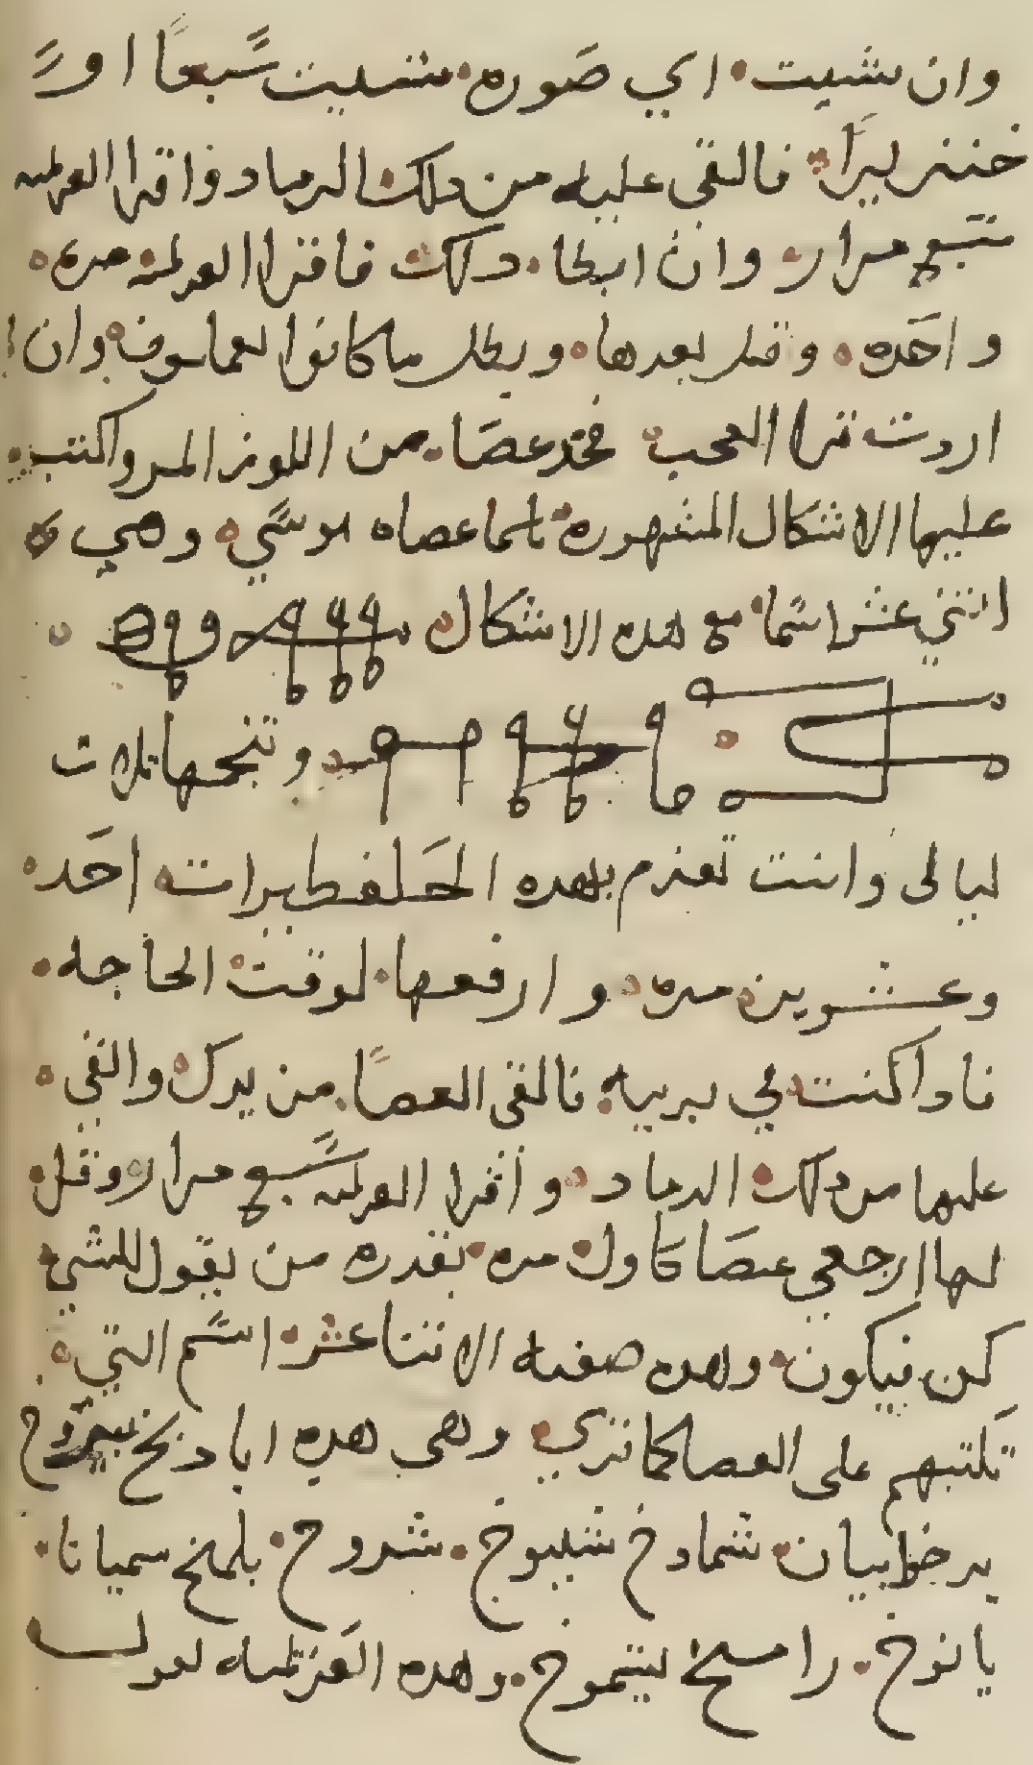 وان شيت اي صوره شيت سبعًا او
خنزيرًا فالقي عليه من دلك الرماد واقرا العزلمه
سبع مرار وان ابطا دلك فاقرا العزلمه مره
واحده وقل بعدها وبطل ما كانوا يعملون وان
اردت ترا العجب فخد عصا من اللوز المر واكتب
عليها الاشكال المشهوره باسما عصاه موسي وهي
اثني عشر اسمًا مع هده الاشكال
وتنجمها تلات
ليالى وانت تعزم بهده الحلفطيرات احد
وعشرين مره وارفعها لوقت الحاجه
فادا كنت في بريه فالقى العصا من يدك والقي
عليها من دلك الرماد واقرا العزلمه سبع مرار وقل
لها ارجعي عصا كاول مره بقدره من يقول للشي
كن فيكون وهده صفه الاتنا عشر اسم التي
تكتبهم على العصا كما تري وهى هده اباديخ بيروخ
يرخوا بيان شماخ شيوخ شروخ بلملخ سميانا
يانوخ راميخ ليتموخ وهده العزيمه تقول